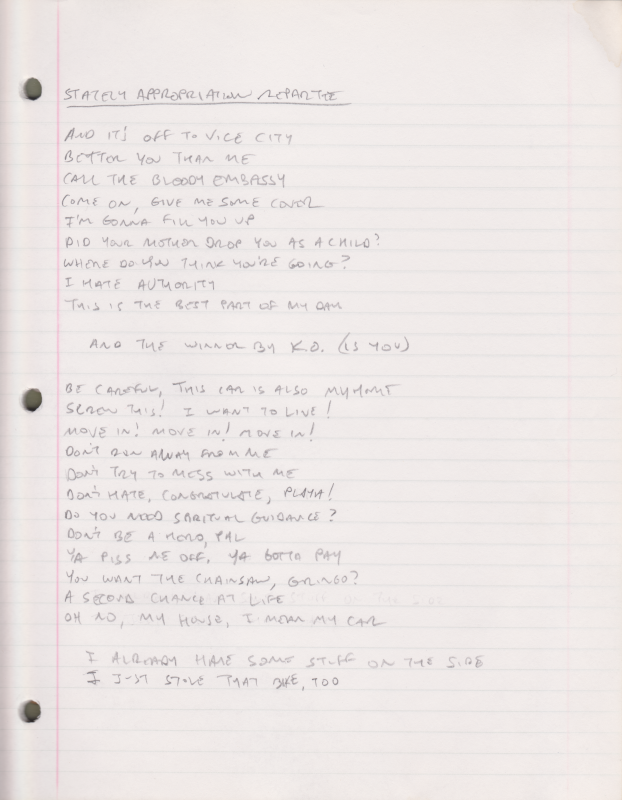 STATELY APPROPRIATION REPARTEE
AND IT'S OFF TO VICE CITY
BETTER YOU THAN ME
CALL THE BLOODY EMBASSY
COME ON, GIVE ME SOME COVER
I'M GONNA FILL YOU UP
DID YOUR MOTHER DROP YOU AS A CHILD?
WHERE DO YOU THINK YOU'RE GOING?
I HATE AUTHORITY
THIS IS THE BEST PART OF MY DAY
AND THE WINNER BY K.O. (IS YOU)
BE CAREFUL, THIS CAR IS ALSO MY HOME
SCREW THIS! I WANT TO LIVE!
MOVE IN! MOVE IN! MOVE IN!
DON'T RUN AWAY FROM ME
DON'T TRY TO MESS WITH ME
DON'T HATE, CONGRATULATE, PLAYA!
DO YOU NEED SPIRITUAL GUIDANCE?
DON'T BE A HERO, PAL
YA PISS ME OFF, YA GOTTO PAY
YOU WANT THE CHAINSAW, GRINGO?
A SECOND CHANCE AT LIFE
OH NO, MY HOUSE, I MEAN MY CAR
I ALREADY HAVE SOME STUFF ON THE SIDE
I JUST STOLE THAT BIKE, TOO